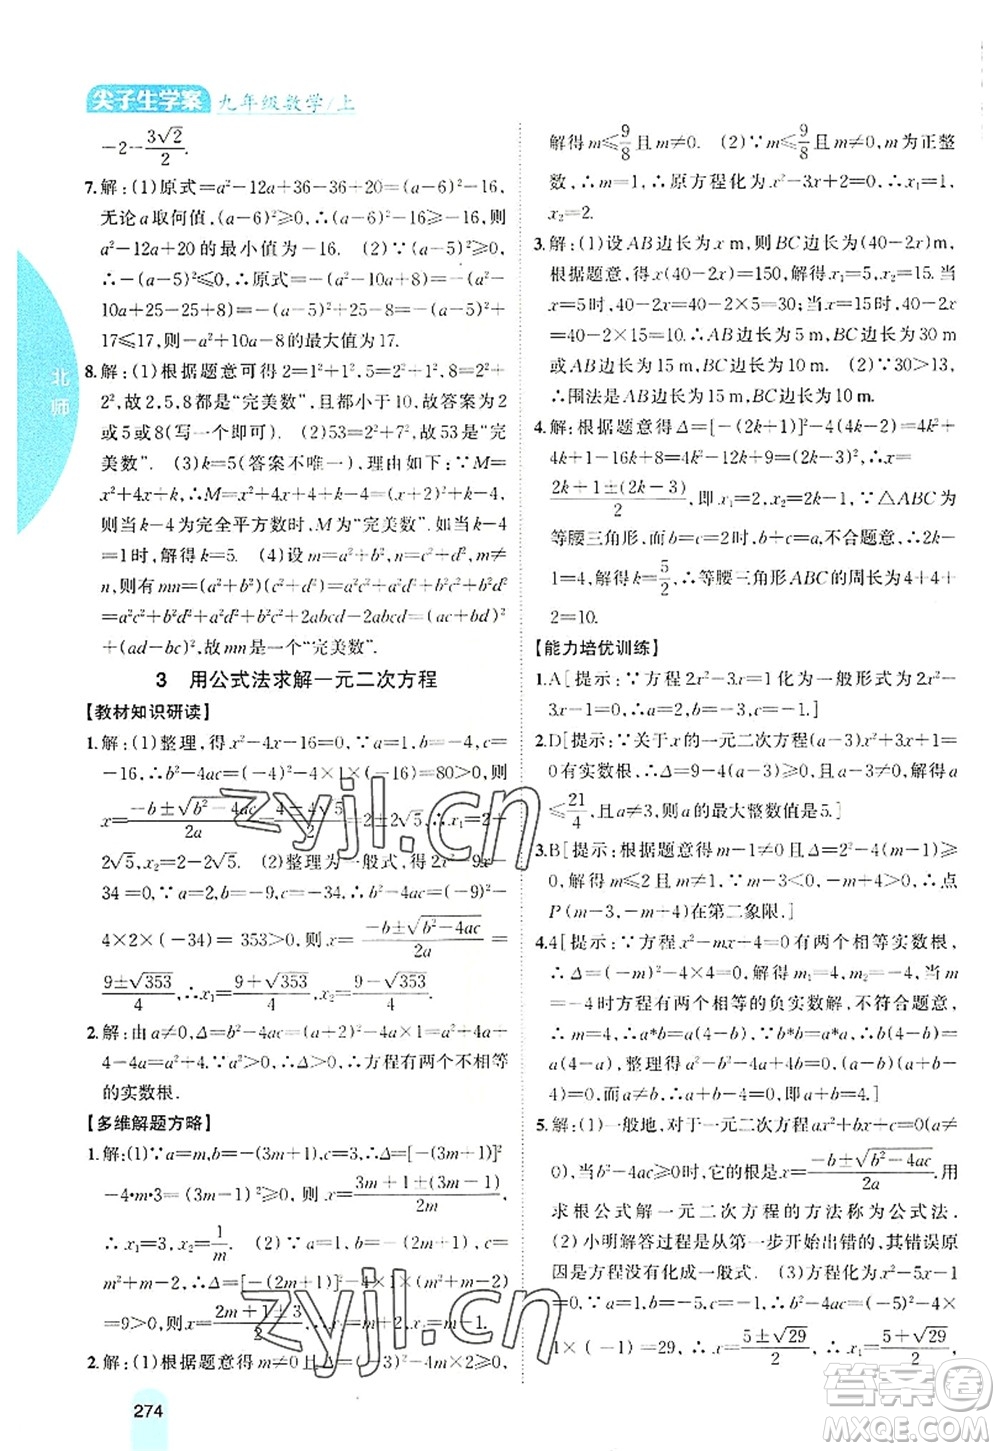 尖子生学案 九年级数学/上
-2-3√2/2.
7.解:(1)原式=a²-12a+36-36+20=(a-6)²-16,
无论a取何值,(a-6)²≥0,∴(a-6)²-16≥-16,则
a²-12a+20的最小值为-16. (2)∵(a-5)²≥0,
∴-(a-5)²≤0,∴原式=-a²+10a-8=-(a²-
10a+25-25)-8=-(a-5)²+25-8=-(a-5)²+17
≤17,∴-a²+10a-8的最大值为17.
8.解:(1)根据题意可得2=1²+1²,5=2²+1²,8=2²+2²,
故2,5,8都是“完美数”,且都小于10,故答案为2
或5或8(写一个即可). (2)53=2²+7²,故53是“完
美数”. (3)k=5(答案不唯一),理由如下:∵M=
x²+4x+k,∴M=x²+4x+4+k-4=(x+2)²+k-4,
则当k-4为完全平方数时,M为“完美数”,如当k-4
=1时,解得k=5. (4)设m=a²+b²,n=c²+d²,m≠
n,则有mn=(a²+b²)(c²+d²)=a²c²+a²d²+b²c²+b²d²
=a²c²+b²d²+b²c²+a²d²+2abcd-2abcd=(ac+bd)²
+(ad-bc)²,故mn是一个“完美数”.
3 用公式法求解一元二次方程
【教材知识研读】
1.解:(1)整理,得x²-4x-16=0,∵a=1,b=-4,c=
-16,∴b²-4ac=(-4)²-4×1×(-16)=80>0,则
x=-b±√b²-4ac/2a=4±4√5/2=2±2√5,∴x₁=2+
2√5,x₂=2-2√5. (2)整理为一般式,得2x²-9x-
34=0,∵a=2,b=-9,c=-34,∴b²-4ac=(-9)²-
4×2×(-34)=353>0,则x=-b±√b²-4ac/2a=
9±√353/4,∴x₁=9+√353/4,x₂=9-√353/4.
2.解:由a≠0,Δ=b²-4ac=(a+2)²-4a=a²+4a+
4-4a=a²+4.∵a²>0,∴Δ>0,∴方程有两个不相等
的实数根.
【多维解题方略】
1.解:(1)∵a=m,b=-(3m+1),c=3,∴Δ=[-(3m+1)]²
-4·m·3=(3m-1)²≥0,则x=3m+1±(3m-1)/2m,
∴x₁=3,x₂=1/m. (2)∵a=1,b=-(2m+1),c=
m²+m-2,∴Δ=[-(2m+1)]²-4×1×(m²+m-2)
=9>0,∴x=2m+1±3/2,∴x₁=m+2,x₂=m-1.
2.解:(1)根据题意得m≠0且Δ=(-3)²-4m×2≥0,
解得m≤9/8且m≠0. (2)∵m≤9/8且m≠0,m为正整
数,∴m=1,∴原方程化为x²-3x+2=0,∴x₁=1,
x₂=2.
3.解:(1)设AB边长为x m,则BC边长为(40-2x)m,
根据题意,得x(40-2x)=150,解得x₁=5,x₂=15,当
x=5时,40-2x=40-2×5=30;当x=15时,40-2x
=40-2×15=10.∴AB边长为5 m,BC边长为30 m
或AB边长为15 m,BC边长为10 m. (2)∵30>20,
∴围法是AB边长为15 m,BC边长为10 m.
4.解:根据题意得Δ=[-(2k+1)]²-4(4k-2)=4k²+
4k+1-16k+8=4k²-12k+9=(2k-3)²≥0.∴x=
2k+1±(2k-3)/2,即x₁=2k-1,x₂=2,∵△ABC为
等腰三角形,而b=2,b+c=a不符合题意,∴2k-
1=4,解得k=5/2,∴等腰三角形ABC的周长为4+4+
2=10.
【能力培优训练】
1.A[提示:∵2x²-3x=1化为一般形式为2x²-
3x-1=0,∴a=2,b=-3,c=-1.]
2.D[提示:∵关于x的一元二次方程(a-3)x²+3x+1=
0有实数根,∴Δ=9-4(a-3)≥0且a-3≠0,解得a
≤21/4,且a≠3,则a的最大整数值是5.]
3.B[提示:根据题意得m-1≠0且Δ=2²-4(m-1)≥0,
解得m≤2且m≠1,∵m-3<0,-m+4>0,∴点
P(m-3,-m+4)在第二象限.]
4.4[提示:∵方程x²-mx+m=0有两个相等实数根,
∴Δ=(-m)²-4m=0,解得m₁=4,m₂=0,当m
=-4时方程有两个相等的负实数解,不符合题意,
∴m=4,∴a*b=a(4-b),∵b*b=a*a,∴b(4-b)
=a(4-a),整理得a²-b²-4a+4b=0,(a-b)(a+b-
4)=0,而a≠b,∴a+b-4=0,即a+b=4.]
5.解:(1)一般地,对于一元二次方程ax²+bx+c=0(a≠
0),当b²-4ac≥0时,它的根是x=-b±√b²-4ac/2a.用
求根公式解一元二次方程的方法称为公式法.
(2)小明解答过程是从第一步开始出错的,其错误原
因是方程没有化成一般式. (3)方程化为x²-5x-1
=0,∵a=1,b=-5,c=-1,∴b²-4ac=(-5)²-4×
1×(-1)=29,∴x=5±√29/2,∴x₁=5+√29/2,
北师
274
zyjl.cn
zyjl.cn
答案圈
MXQE.COM